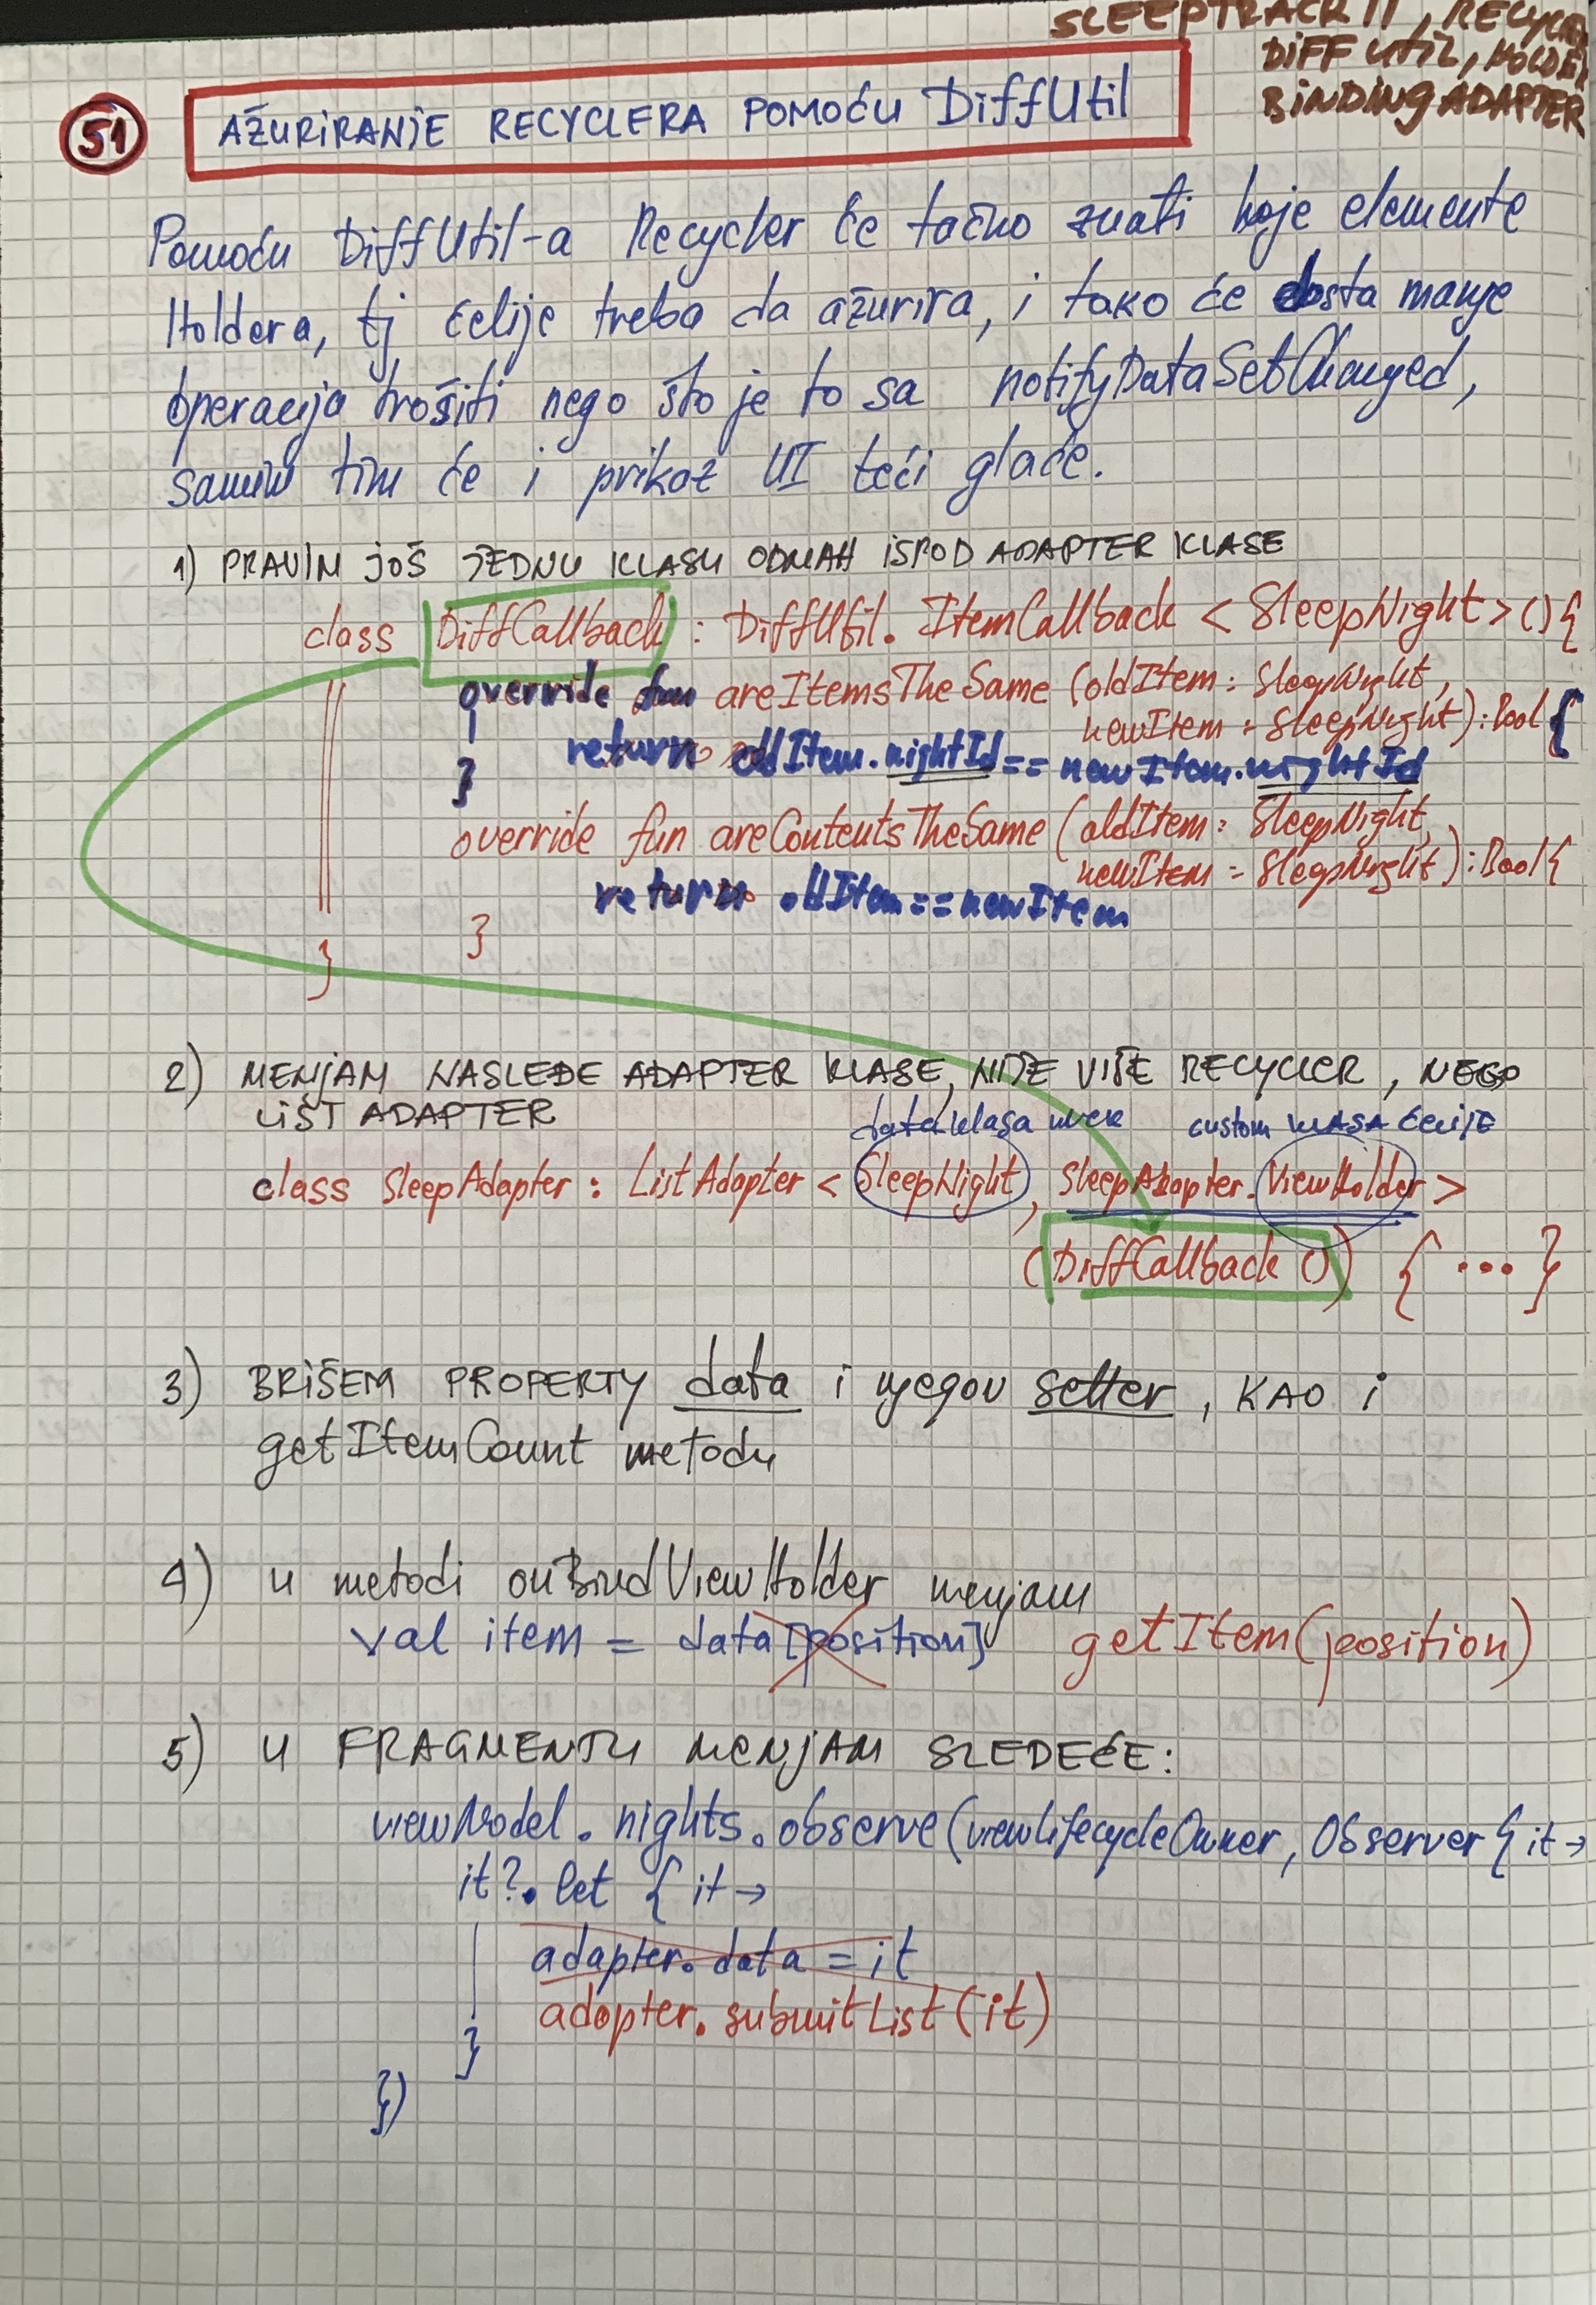 SLEEPTRACK II, RECYCLER
DIFF UTIL, HOLDER
BINDING ADAPTER
51
AŽURIRANJE RECYCLERA POMOĆU DiffUtil
Pomoću DiffUtil-a Recycler će tačno znati koje elemente
Holdera, tj ćelije treba da ažurira, i tako će dosta manje
operacija trošiti nego što je to sa notifyDataSetChanged,
samim tim će i prikaz UI teći glađe.
1) PRAVIM JOŠ JEDNU KLASU ODMAH ISPOD ADAPTER KLASE
class DiffCallback : DiffUtil.ItemCallback <SleepNight>(){
override fun areItemsTheSame (oldItem: SleepNight,
newItem: SleepNight):Bool{
return oldItem.nightId == newItem.nightId
}
override fun areContentsTheSame (oldItem: SleepNight,
newItem: SleepNight):Bool{
return oldItem==newItem
}
}
2) MENJAM NASLEĐE ADAPTER KLASE, NIJE VIŠE RECYCLER, NEGO
LIST ADAPTER
data klasa uvek custom KLASA ĆELIJE
class SleepAdapter : ListAdapter <SleepNight, SleepAdapter.ViewHolder>
(DiffCallback ()) { ... }
3) BRIŠEM PROPERTY data i njegov setter, KAO i
getItemCount metodu
4) u metodi onBindViewHolder menjam
val item = data[position] getItem(position)
5) U FRAGMENTU MENJAM SLEDEĆE:
viewModel.nights.observe(viewLifecycleOwner, Observer{ it →
it?.let { it →
adapter.data = it
adapter.submitList(it)
}
})